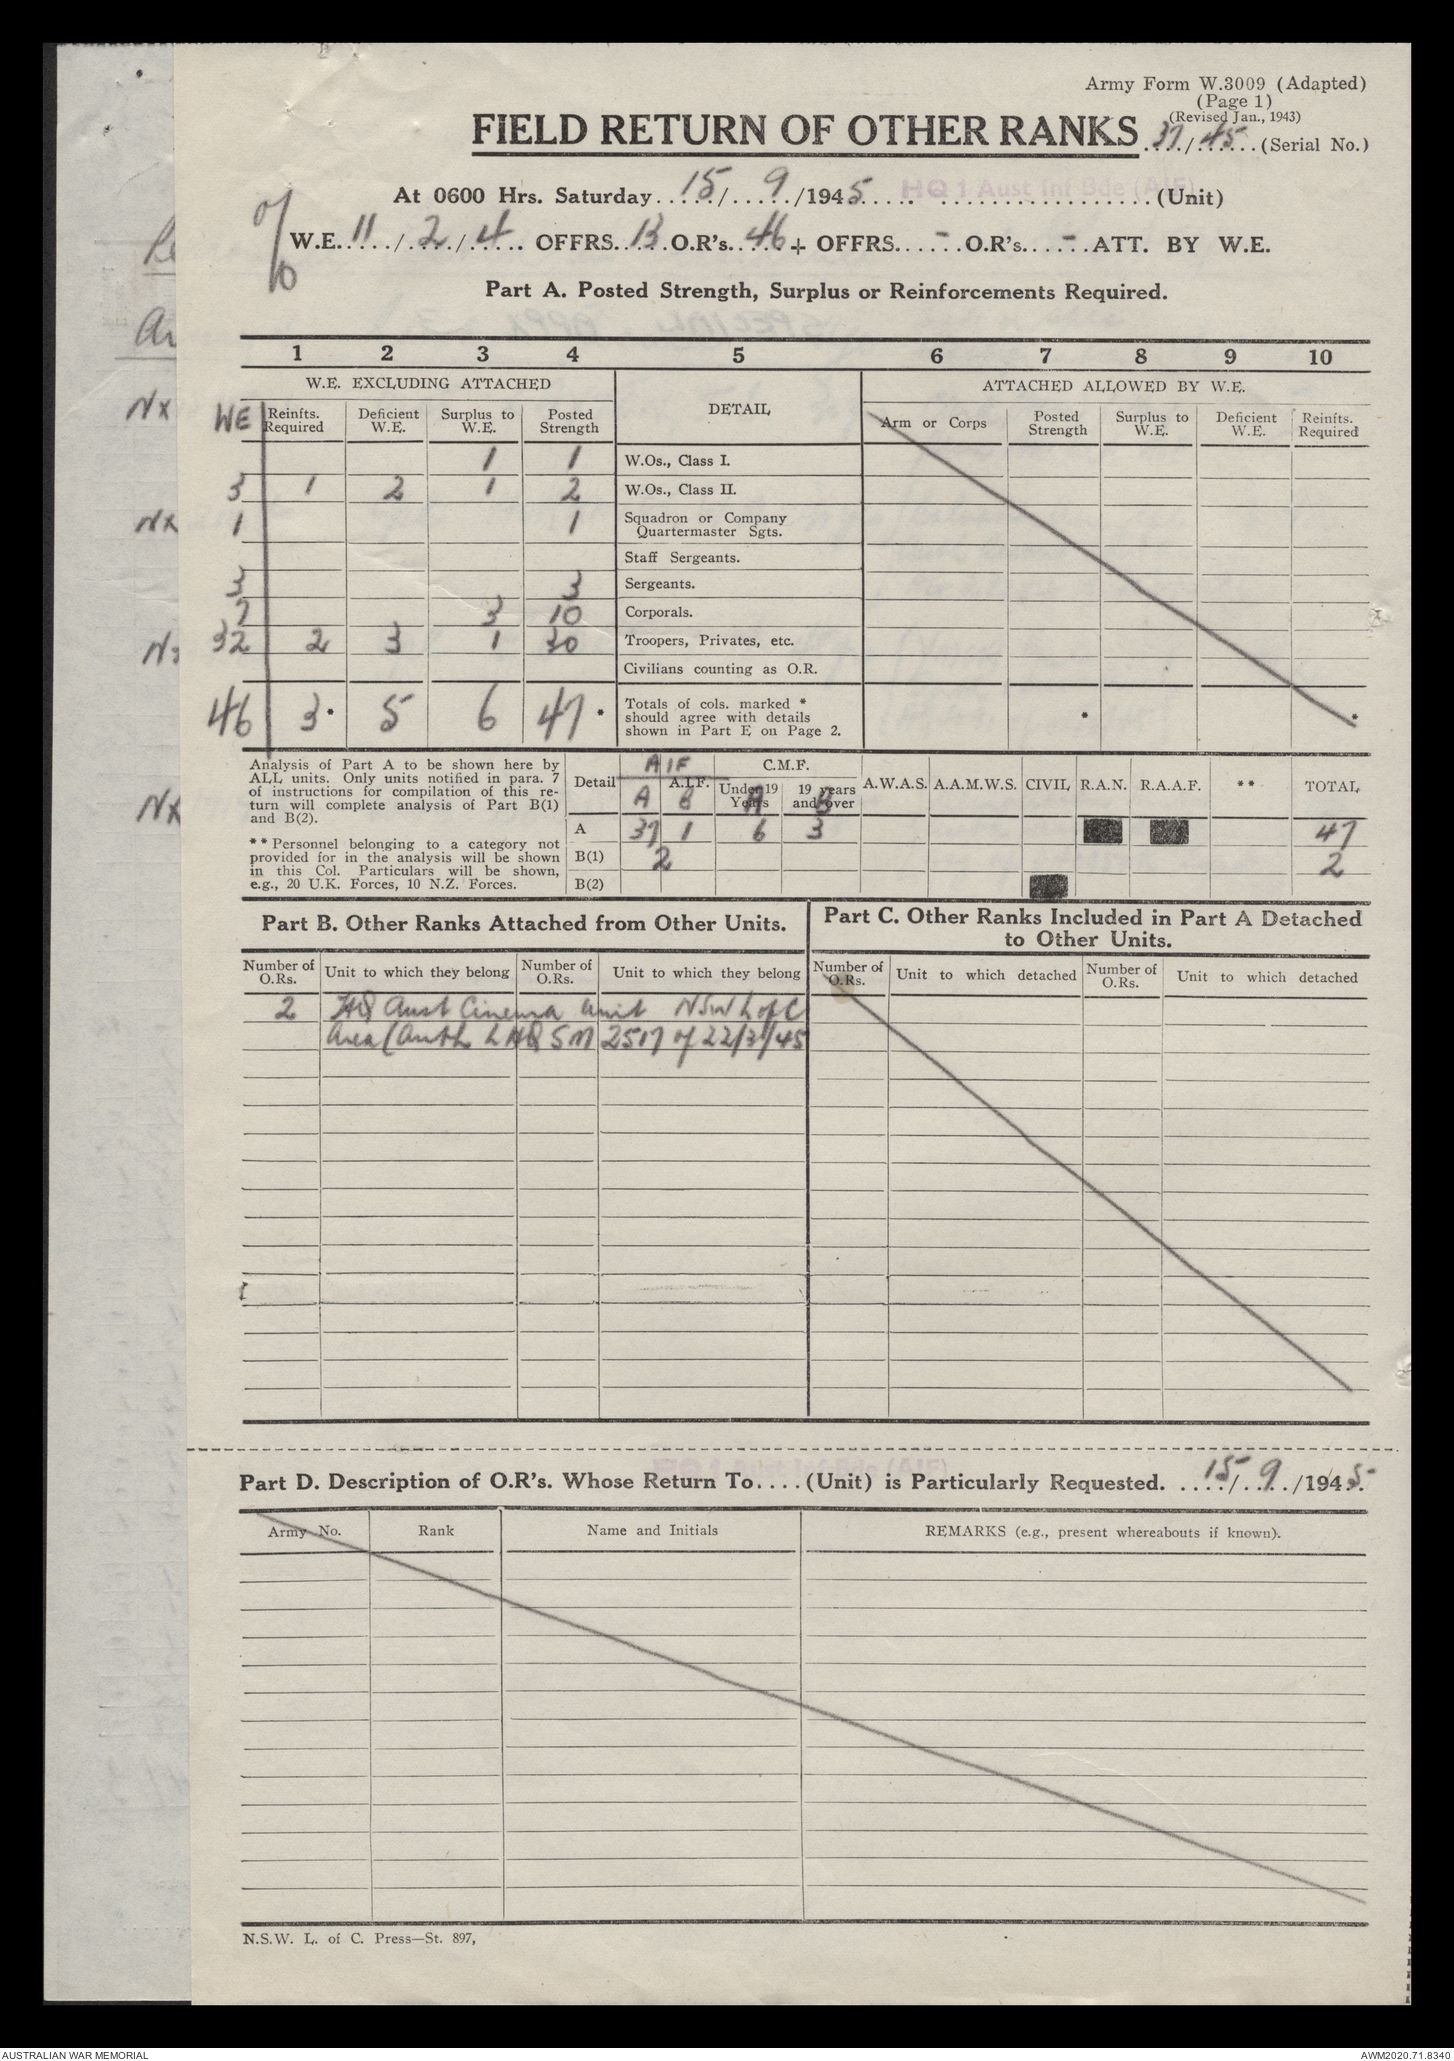 Army Form W.3009 (Adapted)
(Page 1)
(Revised Jan., 1943)
FIELD RETURN OF OTHER RANKS 37/45 (Serial No.)
At 0600 Hrs. Saturday 15/9/1945 HQ 1 Aust Inf Bde (AIF) (Unit)
W.E. 11/2/4 OFFRS. 13 O.R's. 46 + OFFRS. - O.R's. - ATT. BY W.E.
Part A. Posted Strength, Surplus or Reinforcements Required.
1 2 3 4 5 6 7 8 9 10
W.E. EXCLUDING ATTACHED DETAIL ATTACHED ALLOWED BY W.E.
WE Reinfts. Required Deficient W.E. Surplus to W.E. Posted Strength Arm or Corps Posted Strength Surplus to W.E. Deficient W.E. Reinfts. Required
1 1 W.Os., Class I.
3 1 2 1 2 W.Os., Class II.
1 1 Squadron or Company
Quartermaster Sgts.
Staff Sergeants.
3 3 Sergeants.
7 3 10 Corporals.
32 2 3 1 30 Troopers, Privates, etc.
Civilians counting as O.R.
46 3* 5 6 47* Totals of cols. marked *
should agree with details
shown in Part E on Page 2.
* *
Analysis of Part A to be shown here by
ALL units. Only units notified in para. 7
of instructions for compilation of this re-
turn will complete analysis of Part B(1)
and B(2).
** Personnel belonging to a category not
provided for in the analysis will be shown
in this Col. Particulars will be shown,
e.g., 20 U.K. Forces, 10 N.Z. Forces.
AIF C.M.F.
Detail A.I.F. Under 19 Years 19 years and over A.W.A.S. A.A.M.W.S. CIVIL R.A.N. R.A.A.F. ** TOTAL
A B A B
A 37 1 6 3 47
B(1) 2 2
B(2)
Part B. Other Ranks Attached from Other Units.
Number of O.Rs. Unit to which they belong Number of O.Rs. Unit to which they belong
2 HQ Aust Cinema Unit NSW L of C
Area (Auth LHQ SM 2517 of 22/3/45
Part C. Other Ranks Included in Part A Detached
to Other Units.
Number of O.Rs. Unit to which detached Number of O.Rs. Unit to which detached
HQ 1 Aust Inf Bde (AIF)
Part D. Description of O.R's. Whose Return To.... (Unit) is Particularly Requested. 15/9/1945
Army No. Rank Name and Initials REMARKS (e.g., present whereabouts if known).
N.S.W. L. of C. Press—St. 897,
NX
NX
NX
AUSTRALIAN WAR MEMORIAL AWM2020.71.8340